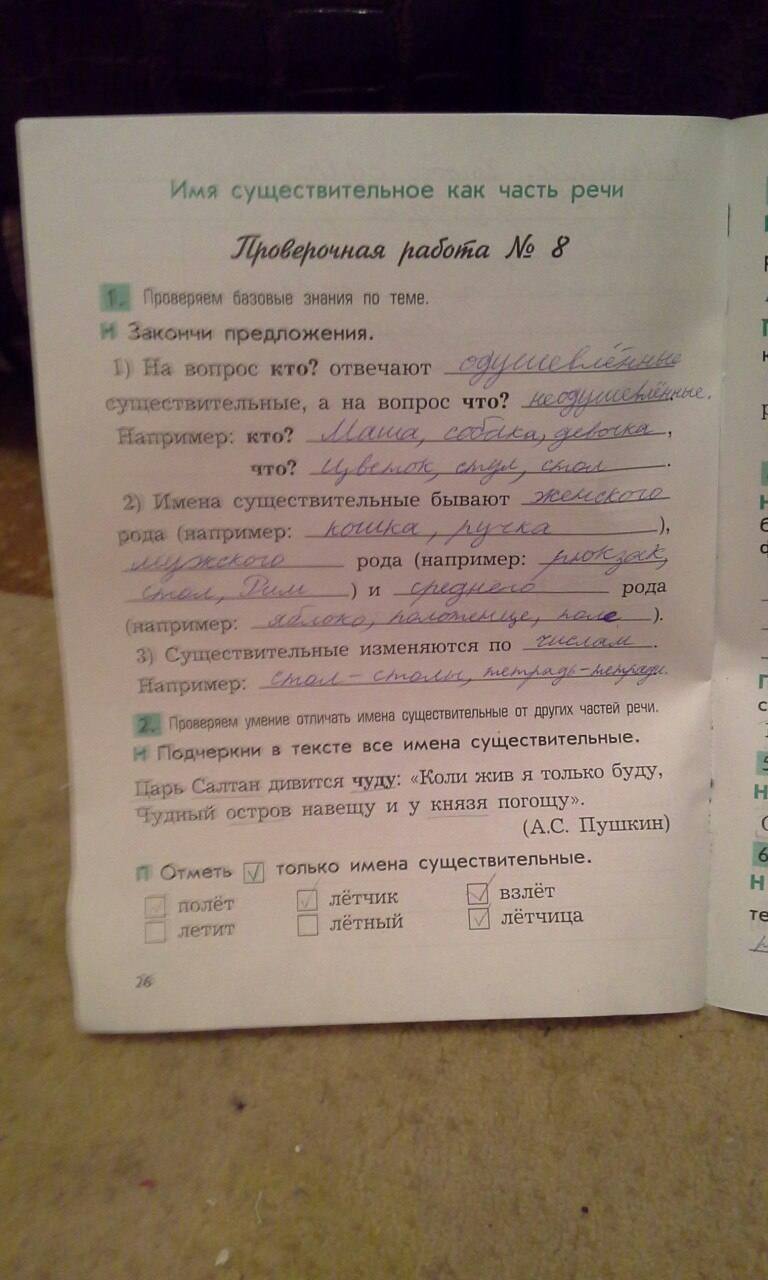 Имя существительное как часть речи
Проверочная работа № 8
1. Проверяем базовые знания по теме.
Н Закончи предложения.
1) На вопрос кто? отвечают одушевлённые
существительные, а на вопрос что? неодушевлённые.
Например: кто? Маша, собака, девочка,
что? Цветок, стул, стол.
2) Имена существительные бывают женского
рода (например: кошка, ручка),
мужского рода (например: рюкзак,
стол, Рим) и среднего рода
(например: яблоко, полотенце, поле).
3) Существительные изменяются по числам.
Например: стол – столы, тетрадь – тетради.
2. Проверяем умение отличать имена существительные от других частей речи.
Н Подчеркни в тексте все имена существительные.
Царь Салтан дивится чуду: «Коли жив я только буду,
Чудный остров навещу и у князя погощу».
(А.С. Пушкин)
П Отметь ✓ только имена существительные.
полёт лётчик взлёт
летит лётный лётчица
26